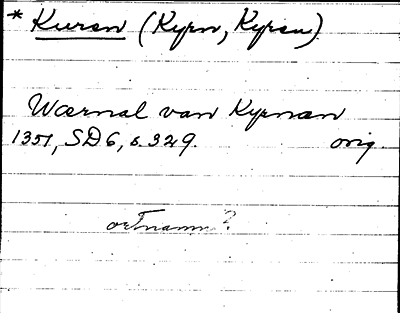 * Kuren (Kyrn, Kyren)
Wærnal van Kyrnan
1351, SD6, s. 329. orig.
ortnamn?